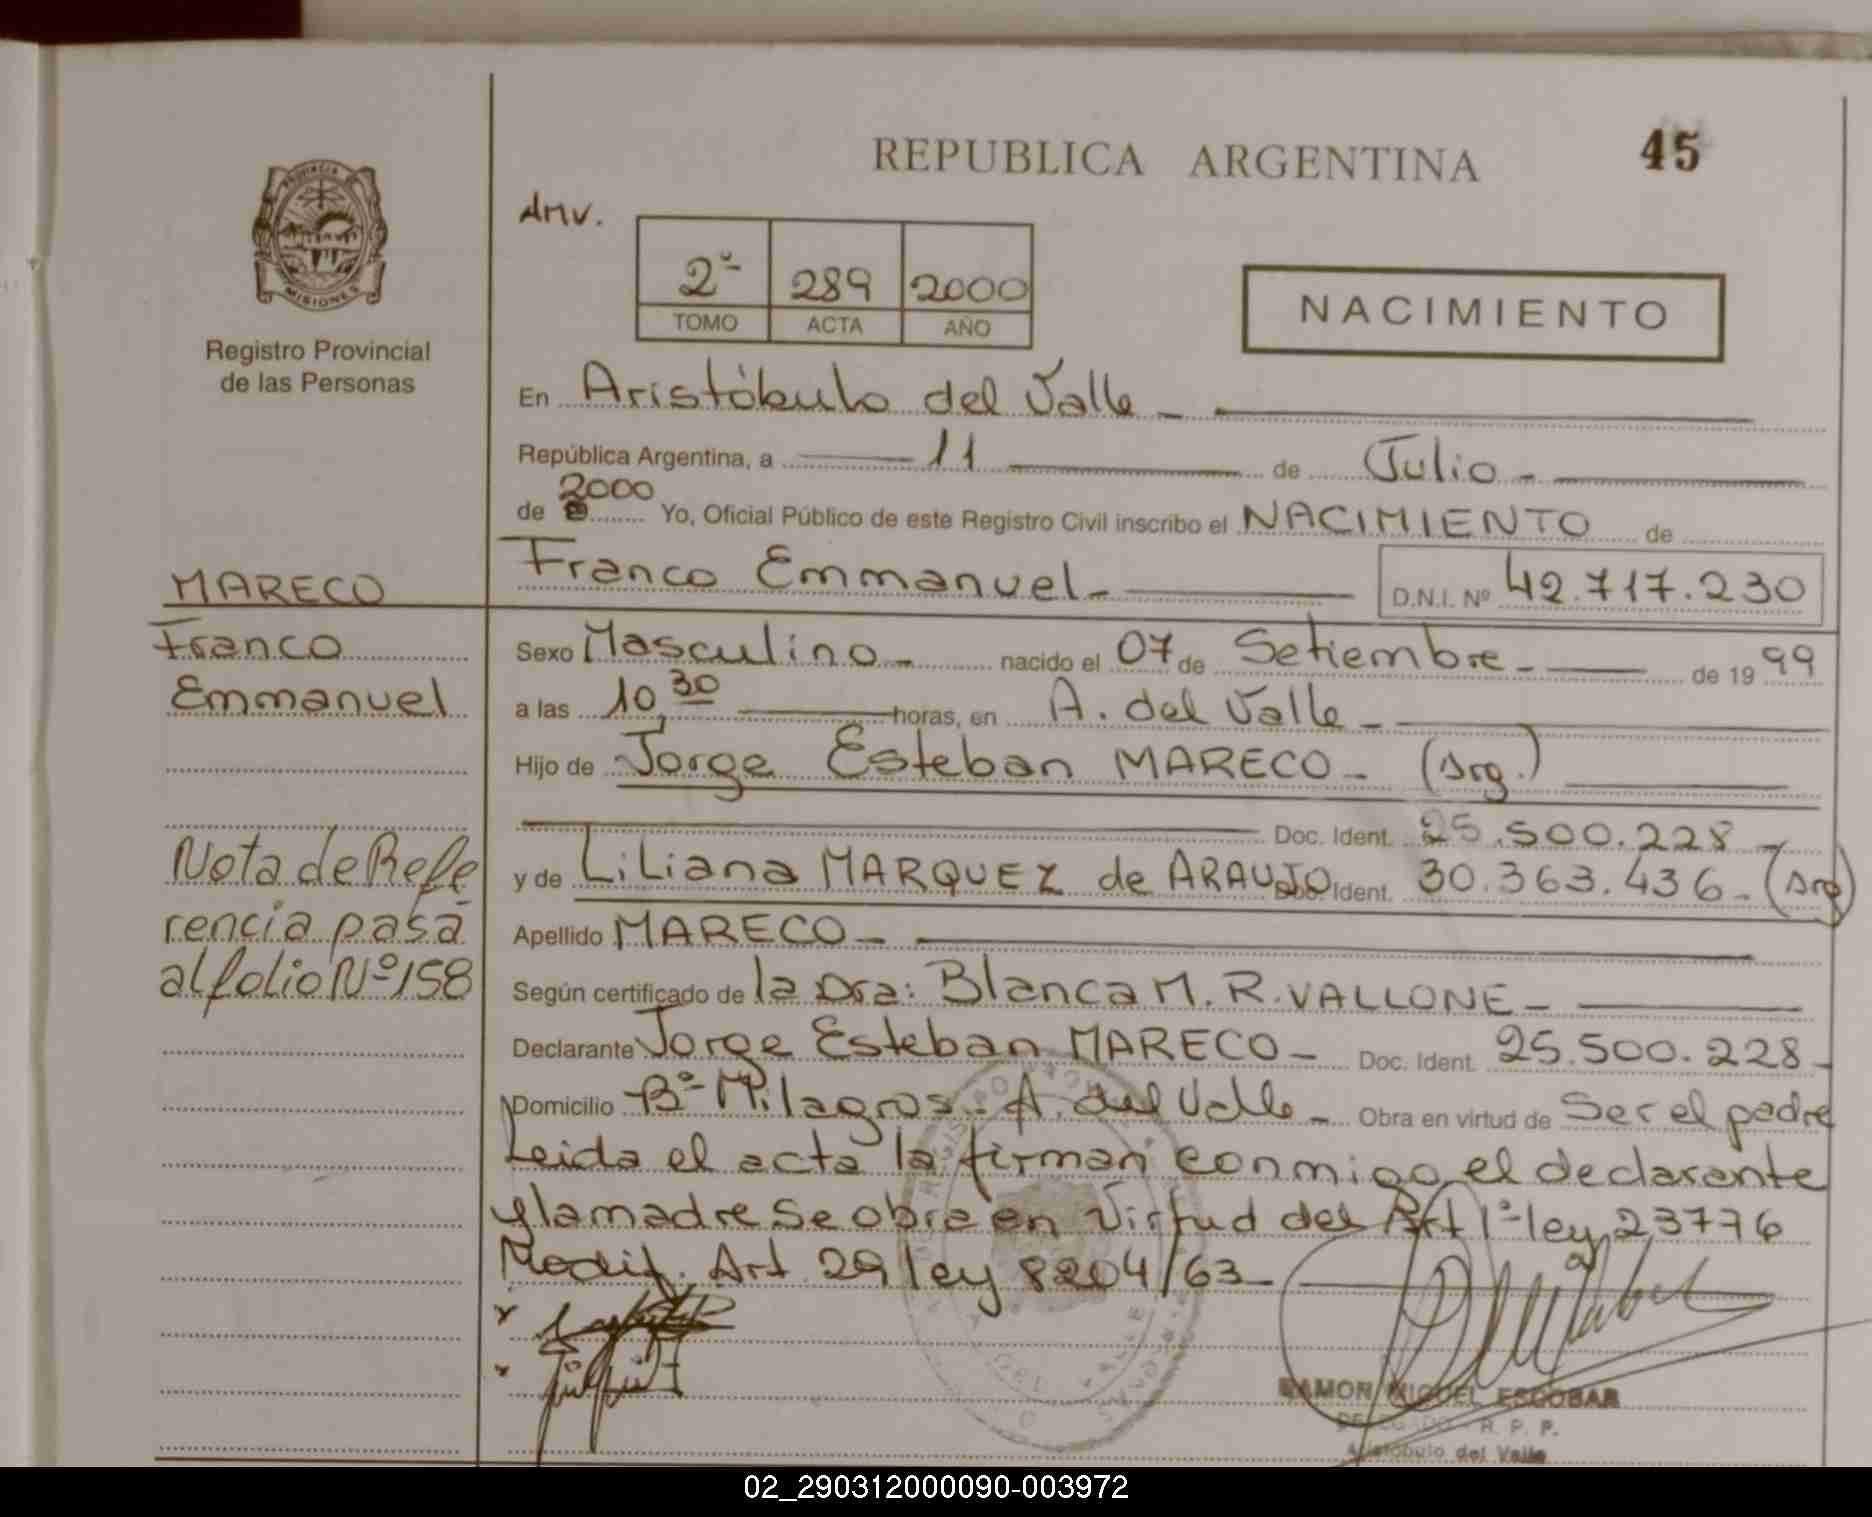 REPUBLICA ARGENTINA
45
PROVINCIA DE
MISIONES
Registro Provincial
de las Personas
AMV.
2º 289 2000
TOMO ACTA AÑO
NACIMIENTO
En Aristóbulo del Valle
República Argentina, a 11 de Julio
de 2000 Yo, Oficial Público de este Registro Civil inscribo el NACIMIENTO de
Franco Emmanuel D.N.I. Nº 42.717.230
Sexo Masculino nacido el 07 de Setiembre de 1999
a las 10,30 horas, en A. del Valle
Hijo de Jorge Esteban MARECO (Arg.)
Doc. Ident. 25.500.228
y de Liliana MARQUEZ de ARAUJO Doc. Ident. 30.363.436 (Arg)
Apellido MARECO
Según certificado de la Dra: Blanca M. R. VALLONE
Declarante Jorge Esteban MARECO Doc. Ident. 25.500.228
Domicilio Bº Milagros A. del Valle Obra en virtud de Ser el padre
Leida el acta la firman conmigo el declarante
y la madre se obra en Virtud del Art 1º ley 23776
Modif. Art 29 ley 8204/63
MARECO
Franco
Emmanuel
Nota de Refe
rencia pasa
al folio Nº 158
RAMON MIGUEL ESCOBAR
DELEGADO R. P. P.
Aristóbulo del Valle
02_290312000090-003972